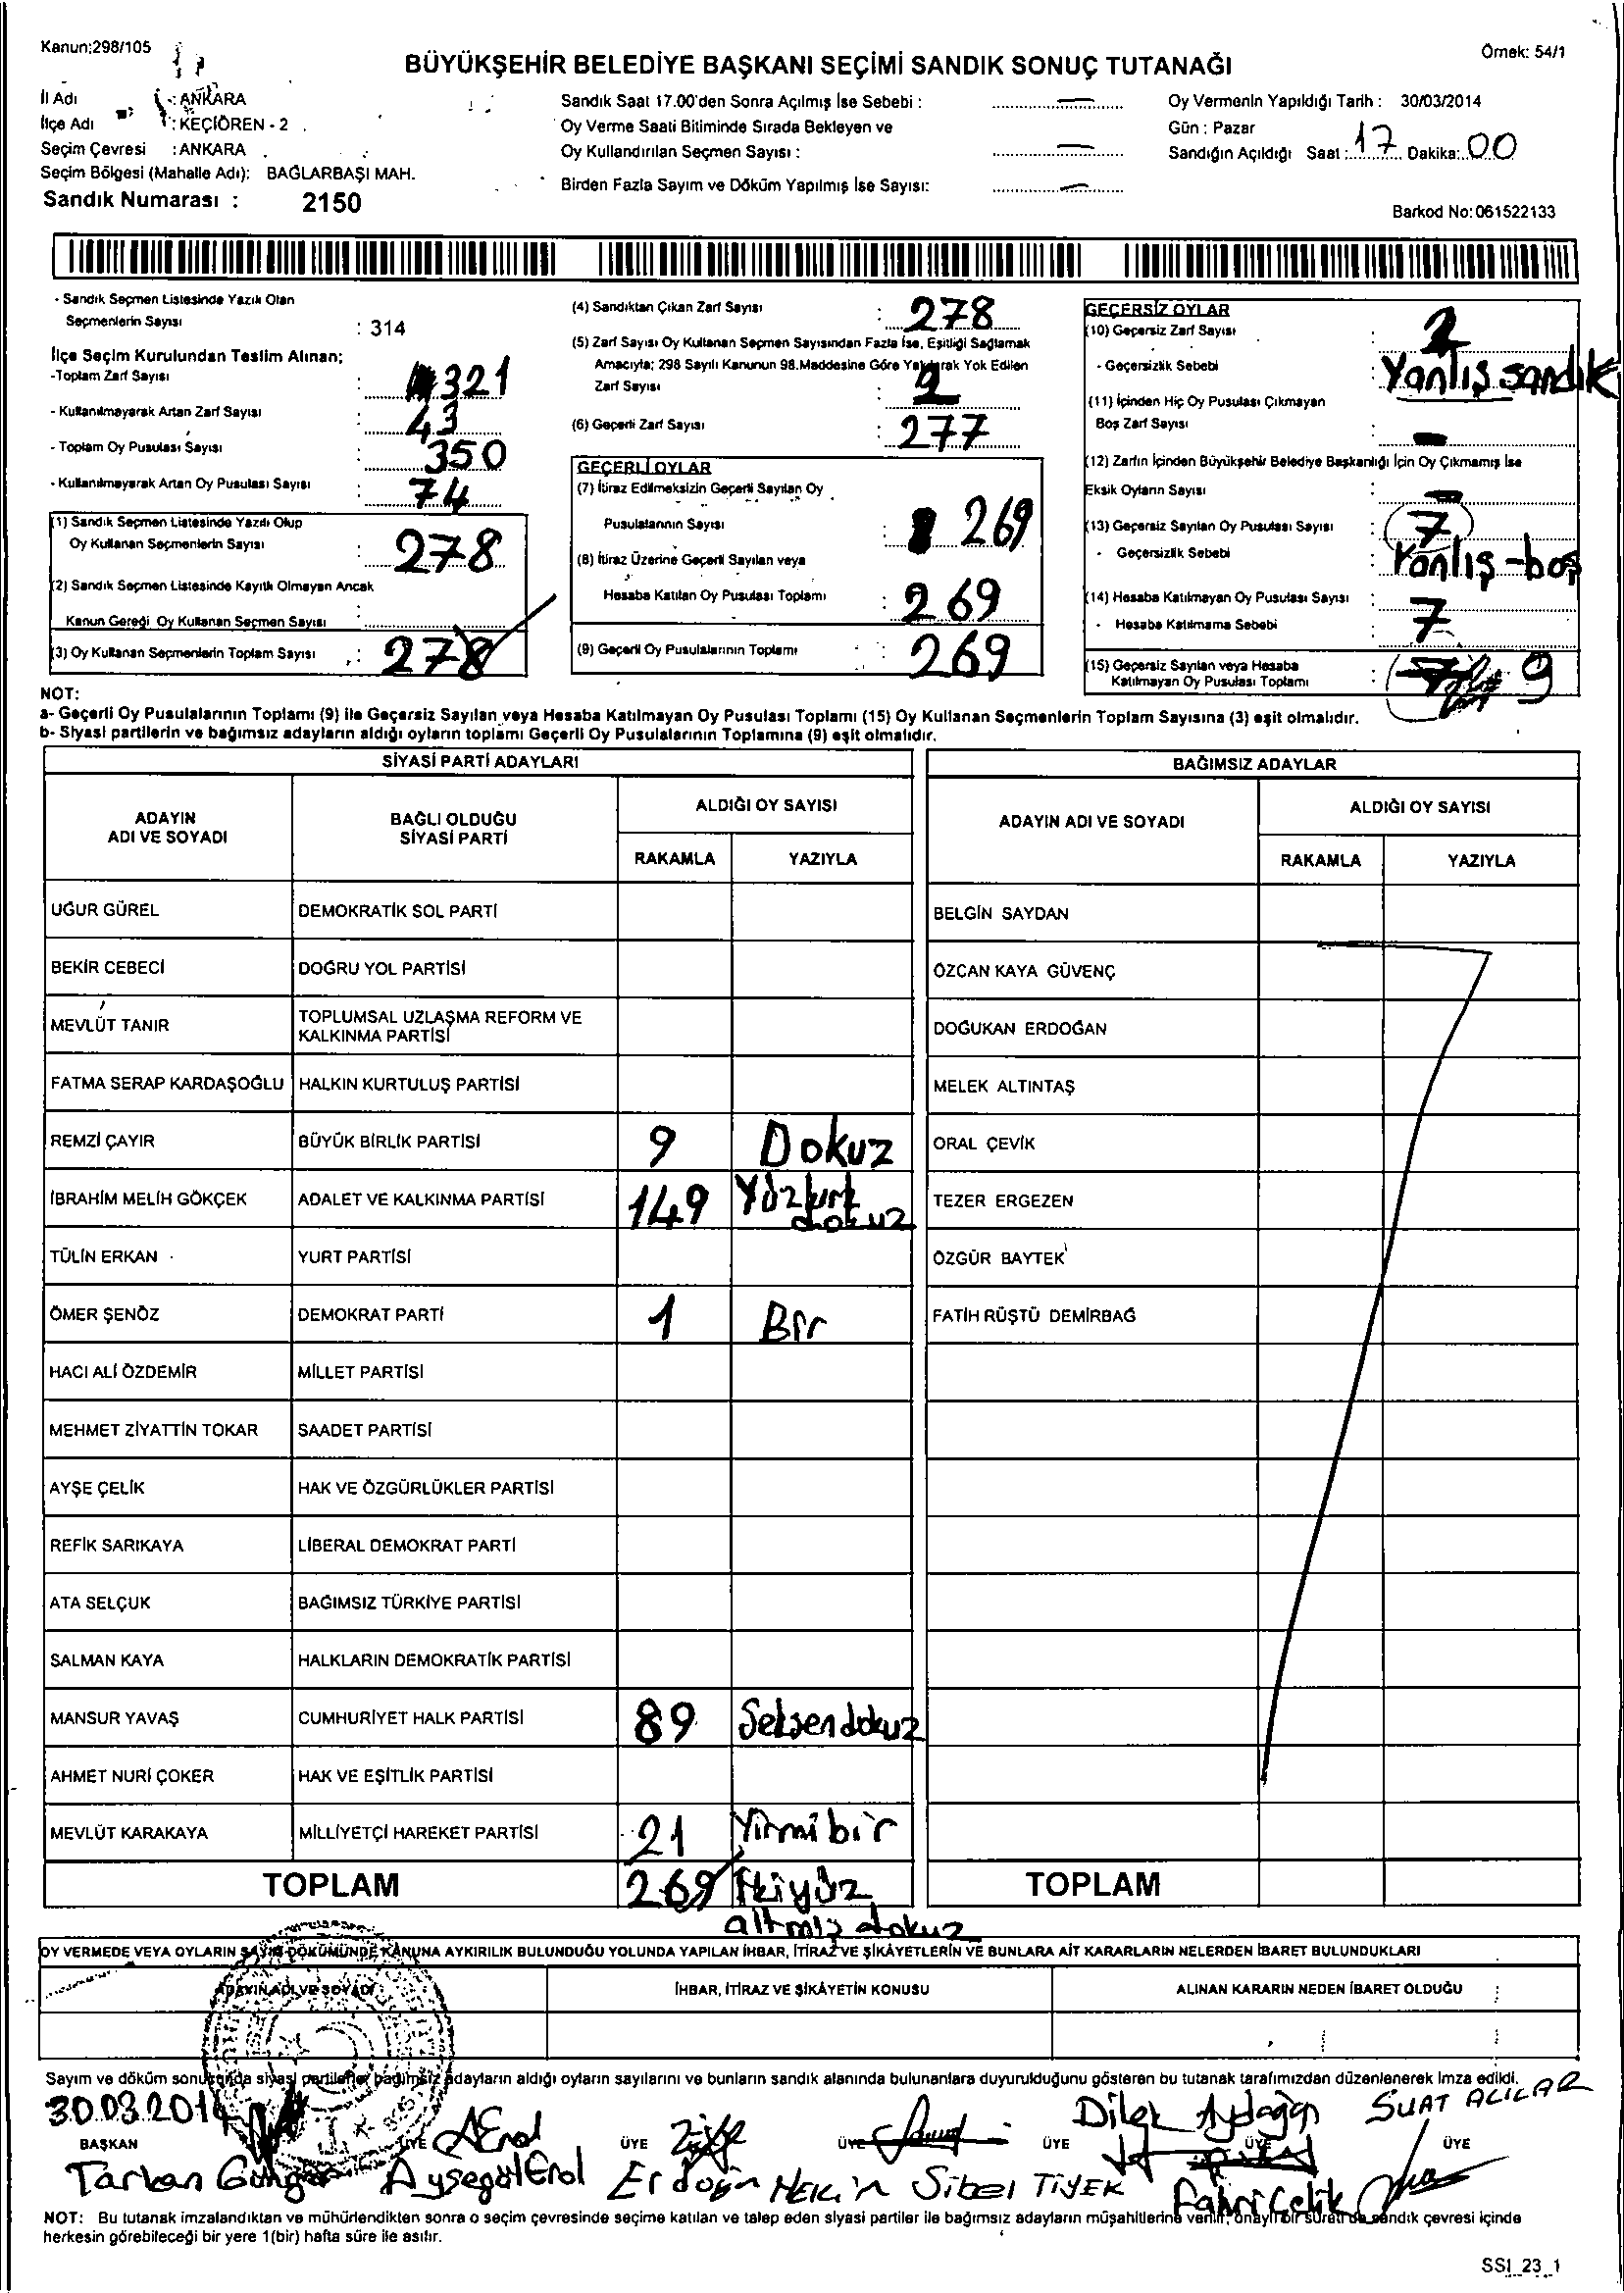 Kanun:298/105
Örnek: 54/1
BÜYÜKŞEHİR BELEDİYE BAŞKANI SEÇİMİ SANDIK SONUÇ TUTANAĞI
İl Adı : ANKARA
İlçe Adı : KEÇİÖREN - 2
Seçim Çevresi : ANKARA
Seçim Bölgesi (Mahalle Adı): BAĞLARBAŞI MAH.
Sandık Numarası : 2150
Sandık Saat 17.00'den Sonra Açılmış İse Sebebi : —
Oy Verme Saati Bitiminde Sırada Bekleyen ve
Oy Kullandırılan Seçmen Sayısı : —
Birden Fazla Sayım ve Döküm Yapılmış İse Sayısı: —
Oy Vermenin Yapıldığı Tarih : 30/03/2014
Gün : Pazar
Sandığın Açıldığı Saat : 17 Dakika: 00
Barkod No: 061522133
- Sandık Seçmen Listesinde Yazılı Olan
Seçmenlerin Sayısı : 314
İlçe Seçim Kurulundan Teslim Alınan;
-Toplam Zarf Sayısı : 321
- Kullanılmayarak Artan Zarf Sayısı : 43
- Toplam Oy Pusulası Sayısı : 350
- Kullanılmayarak Artan Oy Pusulası Sayısı : 74
(1) Sandık Seçmen Listesinde Yazılı Olup
Oy Kullanan Seçmenlerin Sayısı : 278
(2) Sandık Seçmen Listesinde Kayıtlı Olmayan Ancak
Kanun Gereği Oy Kullanan Seçmen Sayısı :
(3) Oy Kullanan Seçmenlerin Toplam Sayısı : 278
(4) Sandıktan Çıkan Zarf Sayısı : 278
(5) Zarf Sayısı Oy Kullanan Seçmen Sayısından Fazla İse, Eşitliği Sağlamak
Amacıyla; 298 Sayılı Kanunun 98.Maddesine Göre Yakılarak Yok Edilen
Zarf Sayısı :
(6) Geçerli Zarf Sayısı : 277
GEÇERLİ OYLAR
(7) İtiraz Edilmeksizin Geçerli Sayılan Oy
Pusulalarının Sayısı : 269
(8) İtiraz Üzerine Geçerli Sayılan veya
Hesaba Katılan Oy Pusulası Toplamı : 269
(9) Geçerli Oy Pusulalarının Toplamı : 269
GEÇERSİZ OYLAR
(10) Geçersiz Zarf Sayısı : 2
- Geçersizlik Sebebi : Yanlış sandık
(11) İçinden Hiç Oy Pusulası Çıkmayan
Boş Zarf Sayısı : —
(12) Zarfın İçinden Büyükşehir Belediye Başkanlığı İçin Oy Çıkmamış İse
Eksik Oyların Sayısı : —
(13) Geçersiz Sayılan Oy Pusulası Sayısı : 7
- Geçersizlik Sebebi : Yanlış - boş
(14) Hesaba Katılmayan Oy Pusulası Sayısı : 7
- Hesaba Katılmama Sebebi :
(15) Geçersiz Sayılan veya Hesaba
Katılmayan Oy Pusulası Toplamı : 9
NOT:
a- Geçerli Oy Pusulalarının Toplamı (9) ile Geçersiz Sayılan veya Hesaba Katılmayan Oy Pusulası Toplamı (15) Oy Kullanan Seçmenlerin Toplam Sayısına (3) eşit olmalıdır.
b- Siyasi partilerin ve bağımsız adayların aldığı oyların toplamı Geçerli Oy Pusulalarının Toplamına (9) eşit olmalıdır.
SİYASİ PARTİ ADAYLARI
ADAYIN ADI VE SOYADI
BAĞLI OLDUĞU SİYASİ PARTİ
ALDIĞI OY SAYISI
RAKAMLA YAZIYLA
UĞUR GÜREL DEMOKRATİK SOL PARTİ
BEKİR CEBECİ DOĞRU YOL PARTİSİ
MEVLÜT TANIR TOPLUMSAL UZLAŞMA REFORM VE
KALKINMA PARTİSİ
FATMA SERAP KARDAŞOĞLU HALKIN KURTULUŞ PARTİSİ
REMZİ ÇAYIR BÜYÜK BİRLİK PARTİSİ 9 Dokuz
İBRAHİM MELİH GÖKÇEK ADALET VE KALKINMA PARTİSİ 149 Yüzkırk
dokuz
TÜLİN ERKAN YURT PARTİSİ
ÖMER ŞENÖZ DEMOKRAT PARTİ 1 Bir
HACI ALİ ÖZDEMİR MİLLET PARTİSİ
MEHMET ZİYATTİN TOKAR SAADET PARTİSİ
AYŞE ÇELİK HAK VE ÖZGÜRLÜKLER PARTİSİ
REFİK SARIKAYA LİBERAL DEMOKRAT PARTİ
ATA SELÇUK BAĞIMSIZ TÜRKİYE PARTİSİ
SALMAN KAYA HALKLARIN DEMOKRATİK PARTİSİ
MANSUR YAVAŞ CUMHURİYET HALK PARTİSİ 89 Seksendokuz
AHMET NURİ ÇOKER HAK VE EŞİTLİK PARTİSİ
MEVLÜT KARAKAYA MİLLİYETÇİ HAREKET PARTİSİ 21 Yirmibir
TOPLAM 269 İkiyüz
altmış dokuz
BAĞIMSIZ ADAYLAR
ADAYIN ADI VE SOYADI
ALDIĞI OY SAYISI
RAKAMLA YAZIYLA
BELGİN SAYDAN
ÖZCAN KAYA GÜVENÇ
DOĞUKAN ERDOĞAN
MELEK ALTINTAŞ
ORAL ÇEVİK
TEZER ERGEZEN
ÖZGÜR BAYTEK
FATİH RÜŞTÜ DEMİRBAĞ
TOPLAM
OY VERMEDE VEYA OYLARIN SAYIM DÖKÜMÜNDE KANUNA AYKIRILIK BULUNDUĞU YOLUNDA YAPILAN İHBAR, İTİRAZ VE ŞİKÂYETLERİN VE BUNLARA AİT KARARLARIN NELERDEN İBARET BULUNDUKLARI
ADAYIN ADI VE SOYADI
İHBAR, İTİRAZ VE ŞİKÂYETİN KONUSU
ALINAN KARARIN NEDEN İBARET OLDUĞU
Sayım ve döküm sonucunda siyasi partilerle bağımsız adayların aldığı oyların sayılarını ve bunların sandık alanında bulunanlara duyurulduğunu gösteren bu tutanak tarafımızdan düzenlenerek imza edildi.
30.03.2014 AErol Dilek Aydağan SUAT ALICILAR
BAŞKAN ÜYE ÜYE ÜYE ÜYE ÜYE ÜYE
Tarkan Güngör Ayşegül Erol Erdoğan Sibel TİYEK Fahri Çelik
NOT: Bu tutanak imzalandıktan ve mühürlendikten sonra o seçim çevresinde seçime katılan ve talep eden siyasi partiler ile bağımsız adayların müşahitlerine verilir, onaylı bir sureti de sandık çevresi içinde
herkesin görebileceği bir yere 1(bir) hafta süre ile asılır.
SSI_23_1